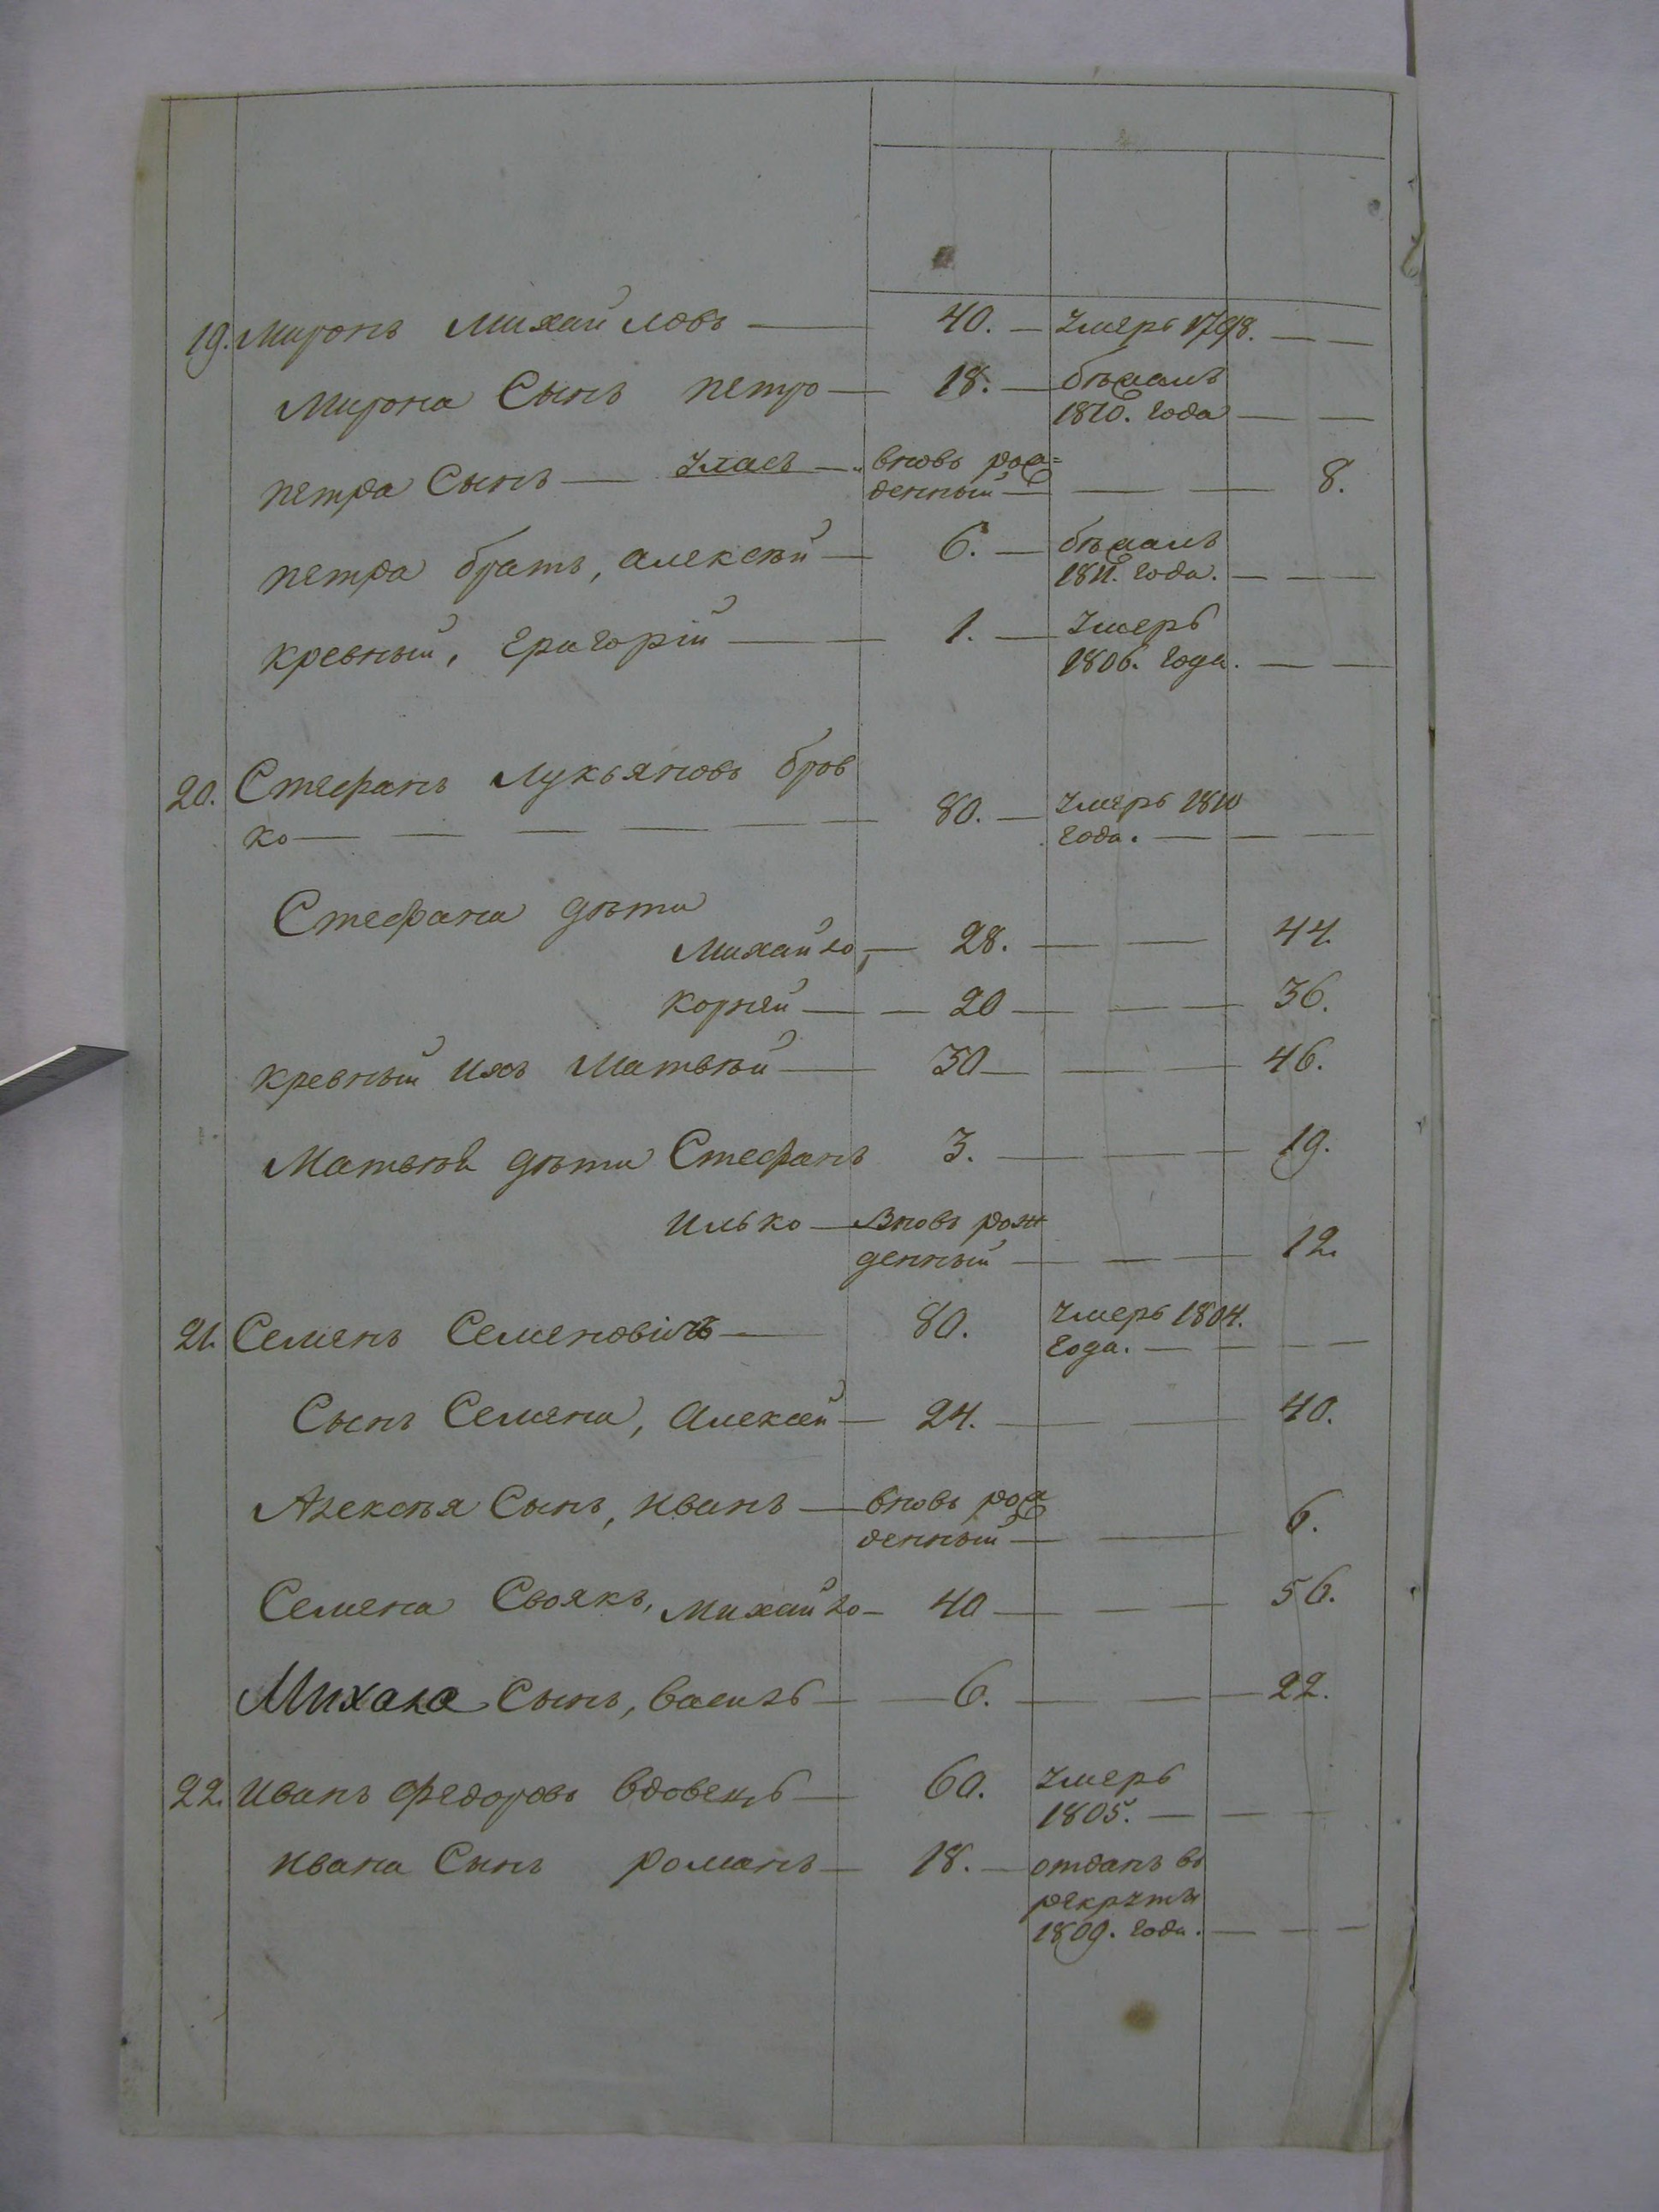 19. Миронъ Михайловъ — 40. — Умеръ 1798. — —
Мирона Сынъ петро — 18. — бѣжалъ
1810. года — —
петра Сынъ — Уласъ — вновь рож=
денный — — — 8.
петра братъ, алексѣй — 6. — бѣжалъ
1811. года. — — —
кревный, григорій — 1. — Умеръ
1806. года. — —
20. Стефанъ Лукьяновъ бров
ко — — — — — — 80. — Умеръ 1810
года. — — —
Стефана дѣти
Михайло, — 28. — — 44.
корней — — 20 — — — 36.
кревный ихъ Матвѣй — 30 — — — 46.
Матвѣя дѣти Стефанъ 3. — — — 19.
илько — Вновь рож
денный — — — 12.
21. Семенъ Семеновичъ — 80. Умеръ 1804.
года. — — — —
Сынъ Семена, алексей — 24. — — — 40.
Алексѣя Сынъ, иванъ — вновь рож
денный — — 6.
Семена Своякъ, михайло — 40 — — — 56.
Михала Сынъ, василь — — 6. — — — 22.
22. иванъ федоровъ вдовецъ — 60. Умеръ
1805. — — —
ивана Сынъ романъ — 18. — отданъ въ
рекруты
1809. года. — — —